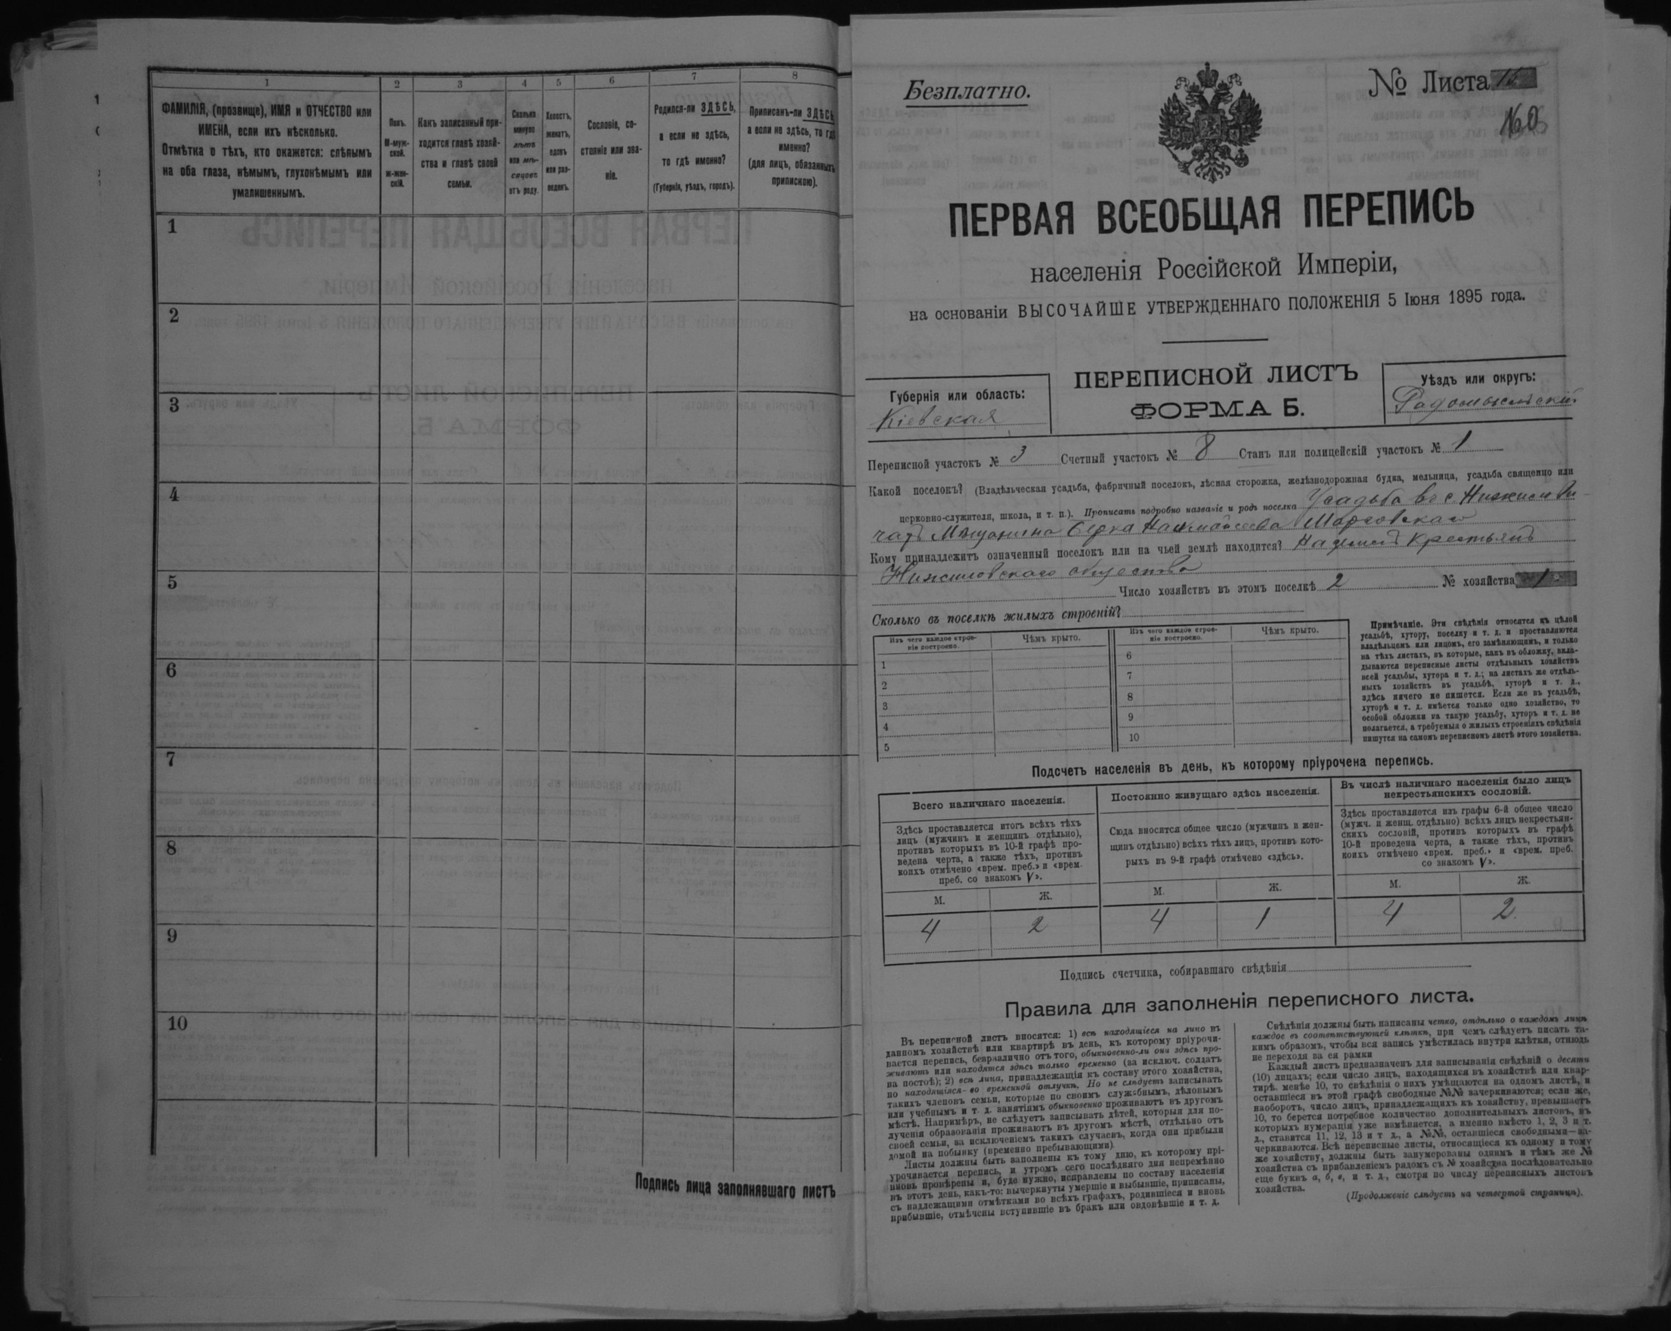 1
2
3
4
5
6
7
8
ФАМИЛІЯ, (прозвище), ИМЯ и ОТЧЕСТВО или
ИМЕНА, если ихъ нѣсколько.
Отмѣтка о тѣхъ, кто окажется: слѣпымъ
на оба глаза, нѣмымъ, глухонѣмымъ или
умалишеннымъ.
Полъ.
М-муж-
ской.
ж-жен-
скій.
Какъ записанный при-
ходится главѣ хозяй-
ства и главѣ своей
семьи.
Сколько
минуло
лѣтъ
или мѣ-
сяцевъ
отъ роду.
Холостъ,
женатъ,
вдовъ
или раз-
веденъ.
Сословіе, со-
стояніе или зва-
ніе.
Родился-ли ЗДѢСЬ,
а если не здѣсь,
то гдѣ именно?
(Губернія, уѣздъ, городъ).
Приписанъ-ли ЗДѢСЬ,
а если не здѣсь, то гдѣ
именно?
(для лицъ, обязанныхъ
припискою).
1
2
3
4
5
6
7
8
9
10
Подпись лица заполнявшаго листъ
Безплатно.
№ Листа
160
ПЕРВАЯ ВСЕОБЩАЯ ПЕРЕПИСЬ
населенія Россійской Имперіи,
на основаніи ВЫСОЧАЙШЕ УТВЕРЖДЕННАГО ПОЛОЖЕНІЯ 5 Іюня 1895 года.
Губернія или область:
Кіевская
ПЕРЕПИСНОЙ ЛИСТЪ
ФОРМА Б.
Уѣздъ или округъ:
Радомысльскій
Переписной участокъ № 3 Счетный участокъ № 8 Станъ или полицейскій участокъ № 1
Какой поселокъ? (Владѣльческая усадьба, фабричный поселокъ, лѣсная сторожка, желѣзнодорожная будка, мельница, усадьба священно или
церковно-служителя, школа, и т. п.). Прописать подробно названіе и родъ поселка Усадьба въ с.
Мѣщанина
Кому принадлежитъ означенный поселокъ или на чьей землѣ находится? На землѣ крестьянъ
общества
Число хозяйствъ въ этомъ поселкѣ 2 № хозяйства 1
Сколько въ поселкѣ жилыхъ строеній?
Изъ чего каждое строе-
ніе построено.
Чѣмъ крыто.
Изъ чего каждое строе-
ніе построено.
Чѣмъ крыто.
1
2
3
4
5
6
7
8
9
10
Примѣчаніе. Эти свѣдѣнія относятся къ цѣлой
усадьбѣ, хутору, поселку и т. д. и проставляются
владѣльцемъ или лицомъ, его замѣняющимъ, и только
на тѣхъ листахъ, въ которые, какъ въ обложку, вкла-
дываются переписные листы отдѣльныхъ хозяйствъ
всей усадьбы, хутора и т. д.; на листахъ же отдѣль-
ныхъ хозяйствъ въ усадьбѣ, хуторѣ и т. д.,
здѣсь ничего не пишется. Если же въ усадьбѣ,
хуторѣ и т. д. имѣется только одно хозяйство, то
особой обложки на такую усадьбу, хуторъ и т. д. не
полагается, а требуемыя о жилыхъ строеніяхъ свѣдѣнія
пишутся на самомъ переписномъ листѣ этого хозяйства.
Подсчетъ населенія въ день, къ которому пріурочена перепись.
Всего наличнаго населенія.
Здѣсь проставляется итогъ всѣхъ тѣхъ
лицъ (мужчинъ и женщинъ отдѣльно),
противъ которыхъ въ 10-й графѣ про-
ведена черта, а также тѣхъ, противъ
коихъ отмѣчено «врем. преб.» и «врем.
преб. со знакомъ V».
Постоянно живущаго здѣсь населенія.
Сюда вносится общее число (мужчинъ и жен-
щинъ отдѣльно) всѣхъ тѣхъ лицъ, противъ кото-
рыхъ въ 9-й графѣ отмѣчено «здѣсь».
Въ числѣ наличнаго населенія было лицъ
некрестьянскихъ сословій.
Здѣсь проставляется изъ графы 6-й общее число
(мужч. и женщ. отдѣльно) всѣхъ лицъ некрестьян-
скихъ сословій, противъ которыхъ въ графѣ
10-й проведена черта, а также тѣхъ, противъ
коихъ отмѣчено «врем. преб.» и «врем. преб.
со знакомъ V».
М. Ж. М. Ж. М. Ж.
4 2 4 1 4 2
Подпись счетчика, собиравшаго свѣдѣнія
Правила для заполненія переписного листа.
Въ переписной листъ вносятся: 1) всѣ находящіеся на лицо въ
данномъ хозяйствѣ или квартирѣ въ день, къ которому пріурочи-
вается перепись, безразлично отъ того, обыкновенно-ли они здѣсь про-
живаютъ или находятся здѣсь только временно (за исключ. солдатъ
на постоѣ); 2) всѣ лица, принадлежащія къ составу этого хозяйства,
но находящіеся во временной отлучкѣ. Но не слѣдуетъ записывать
такихъ членовъ семьи, которые по своимъ служебнымъ, дѣловымъ
или учебнымъ и т. д. занятіямъ обыкновенно проживаютъ въ другомъ
мѣстѣ. Напримѣръ, не слѣдуетъ записывать дѣтей, которыя для по-
лученія образованія проживаютъ въ другомъ мѣстѣ, отдѣльно отъ
своей семьи, за исключеніемъ такихъ случаевъ, когда они прибыли
домой на побывку (временно пребывающими).
Листы должны быть заполнены къ тому дню, къ которому прі-
урочивается перепись, и утромъ сего послѣдняго дня непремѣнно
вновь провѣрены и, буде нужно, исправлены по составу населенія
въ этотъ день, какъ-то: вычеркнуты умершіе и выбывшіе, приписаны,
съ надлежащими отмѣтками во всѣхъ графахъ, родившіеся и вновь
прибывшіе, отмѣчены вступившіе въ бракъ или овдовѣвшіе и т. д.
Свѣдѣнія должны быть написаны четко, отдѣльно о каждомъ лицѣ,
каждое въ соотвѣтствующей клѣткѣ, при чемъ слѣдуетъ писать та-
кимъ образомъ, чтобы вся запись умѣстилась внутри клѣтки, отнюдь
не переходя за ея рамки
Каждый листъ предназначенъ для записыванія свѣдѣній о десяти
(10) лицахъ; если число лицъ, находящихся въ хозяйствѣ или квар-
тирѣ, менѣе 10, то свѣдѣнія о нихъ умѣщаются на одномъ листѣ, и
оставшіеся въ этой графѣ свободные №№ зачеркиваются; если же,
наоборотъ, число лицъ, принадлежащихъ къ хозяйству, превышаетъ
10, то берется потребное количество дополнительныхъ листовъ, въ
которыхъ нумерація уже измѣняется, а именно вмѣсто 1, 2, 3 и т.
д., ставятся 11, 12, 13 и т д., а №№, оставшіеся свободными—за-
черкиваются. Всѣ переписные листы, относящіеся къ одному и тому
же хозяйству, должны быть занумерованы однимъ и тѣмъ же №
хозяйства съ прибавленіемъ рядомъ съ № хозяйства послѣдовательно
еще буквъ а, б, в, и т. д., смотря по числу переписныхъ листовъ
хозяйства.
(Продолженіе слѣдуетъ на четвертой страницѣ).